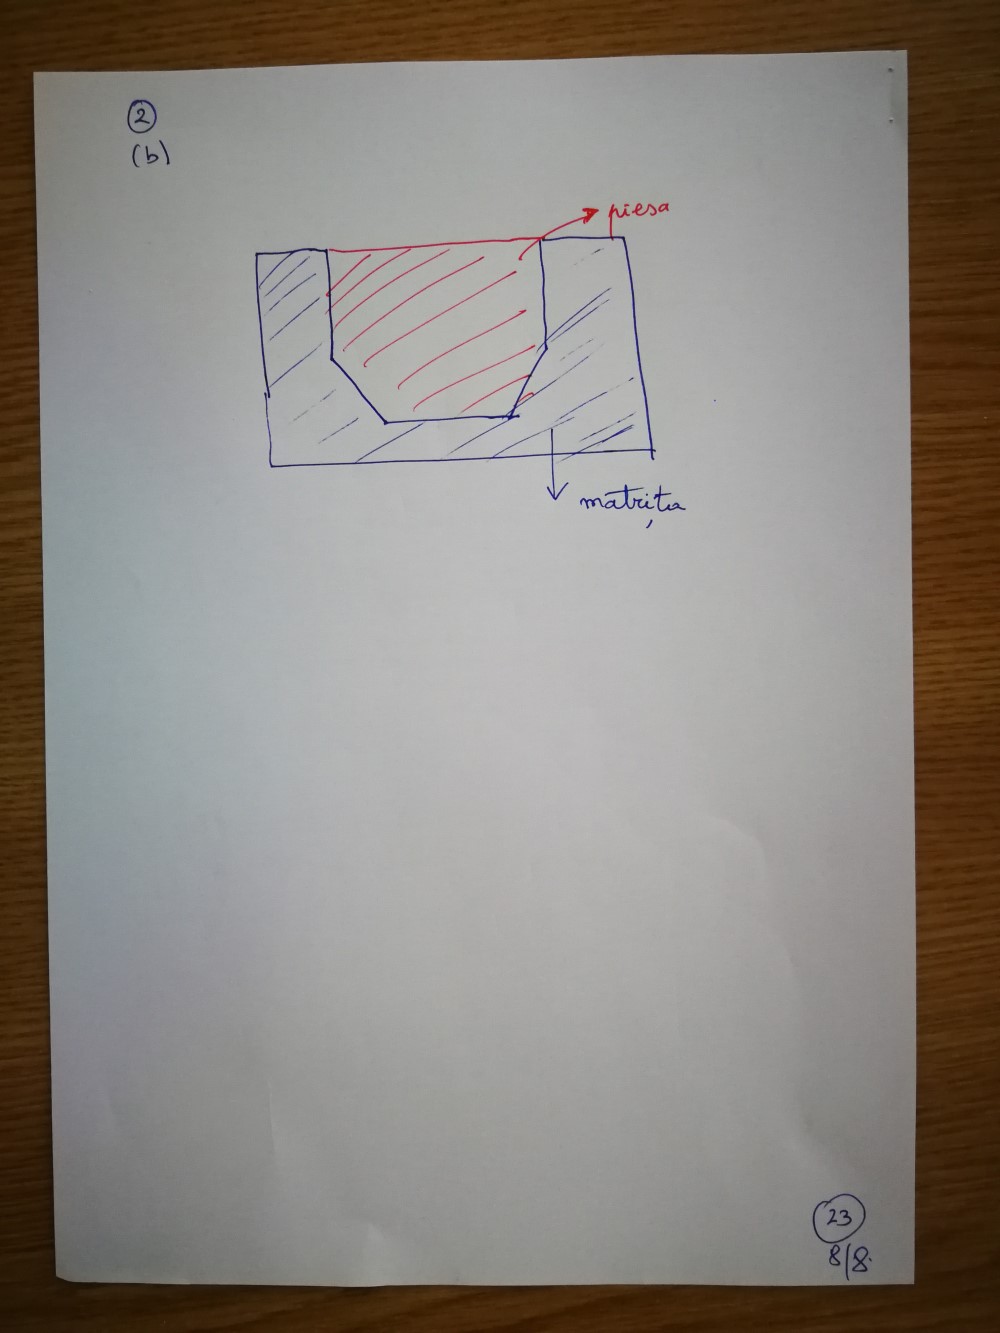 2
(b)
piesa
matrița
23
8/8.